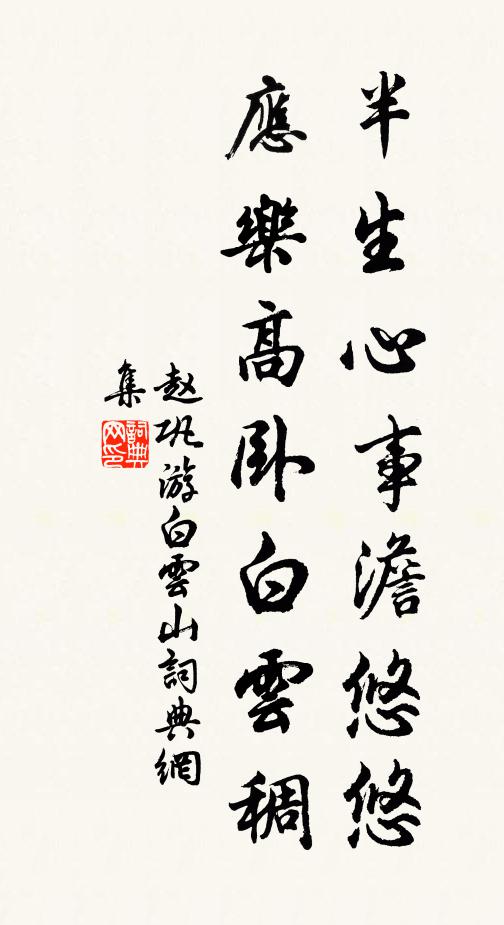 半生心事澹悠悠
應樂高卧白雲稠
赵巩游白雲山詞典網
集
詞典
网印